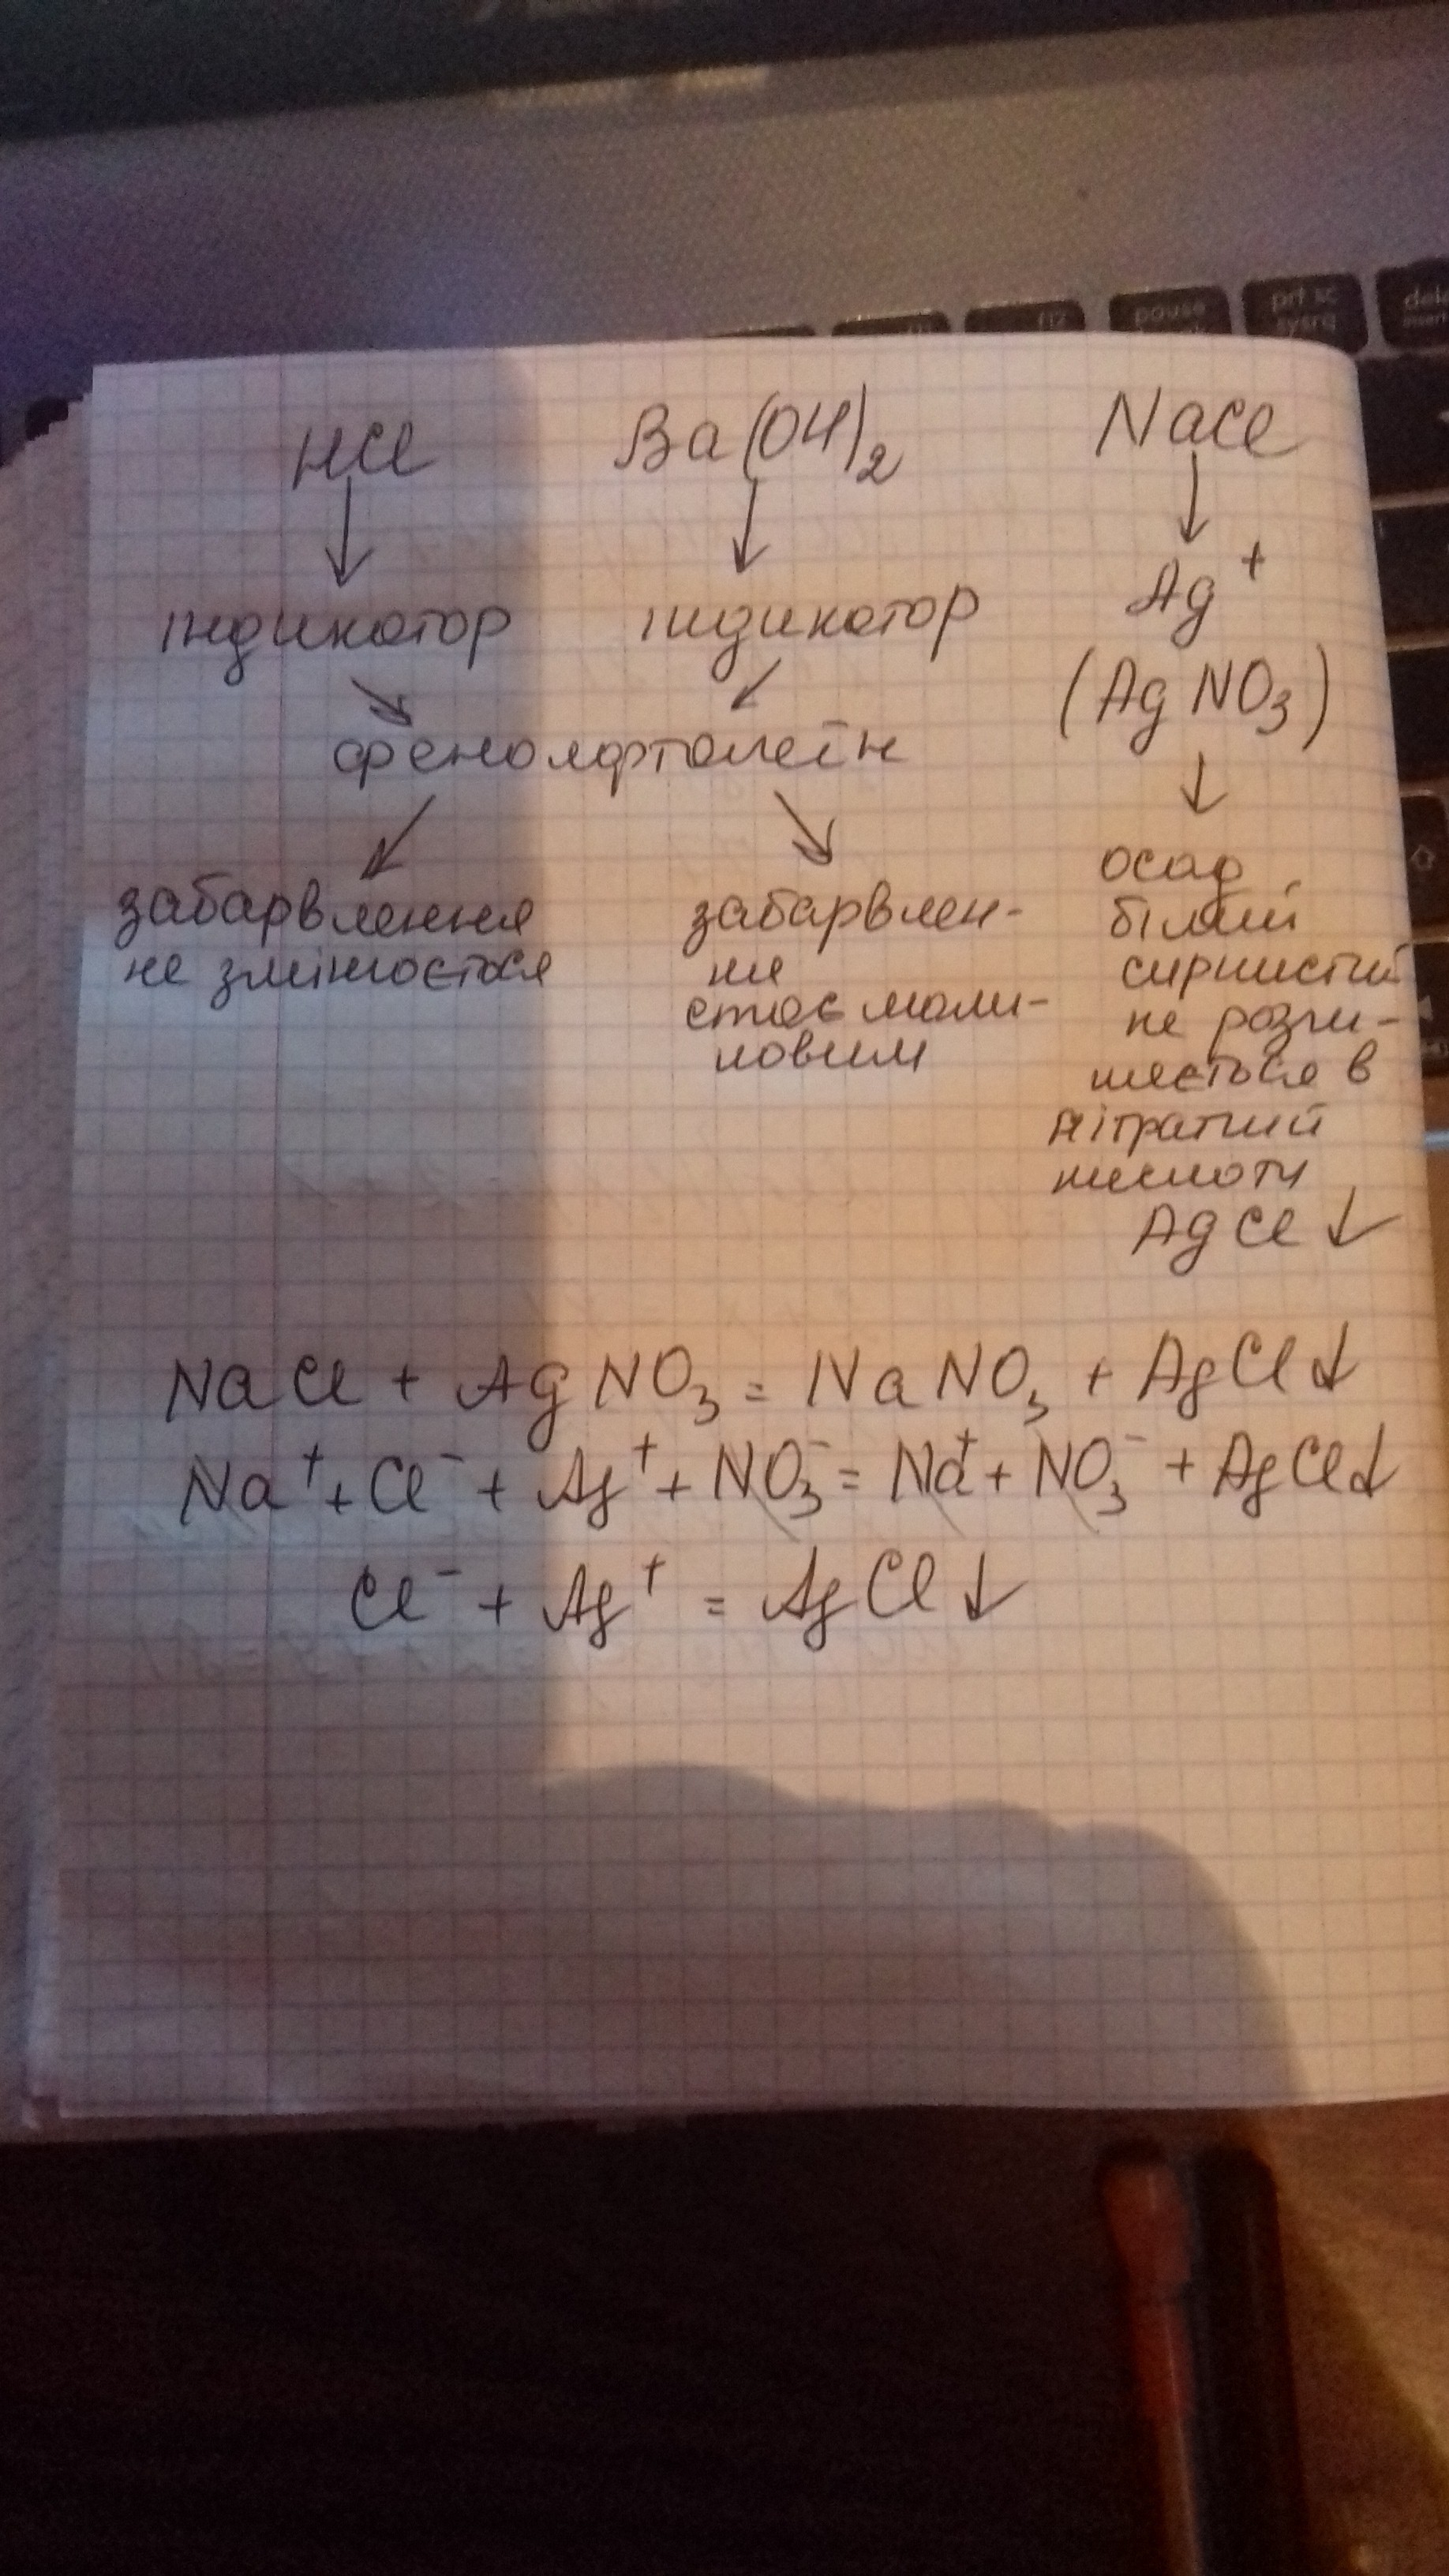 pause
prt sc
sysrq
f12
HCl Ba(OH)₂ NaCl
↓ ↓ ↓
індикатор індикатор Ag⁺
(AgNO₃)
фенолфталеїн
забарвлення
не змінюється
забарвлен-
ня
стає мали-
новим
осад
білий
сирнистий
не розчи-
няється в
нітратній
кислоті
AgCl ↓
NaCl + AgNO₃ = NaNO₃ + AgCl↓
Na⁺ + Cl⁻ + Ag⁺ + NO₃⁻ = Na⁺ + NO₃⁻ + AgCl↓
Cl⁻ + Ag⁺ = AgCl↓